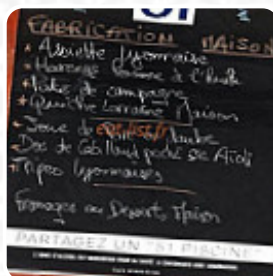 51
FABRICATION MAISON
* Assiette Lyonnaise
* Harengs Pomme à l'Huile
* Pâté de campagne
* Quiche Lorraine Maison
* Joue de
Dos de Cabillaud poché se Aïoli
* Tripes Lyonnaises
Fromages ou Desserts Maison
PARTAGEZ UN "51 PISCINE"